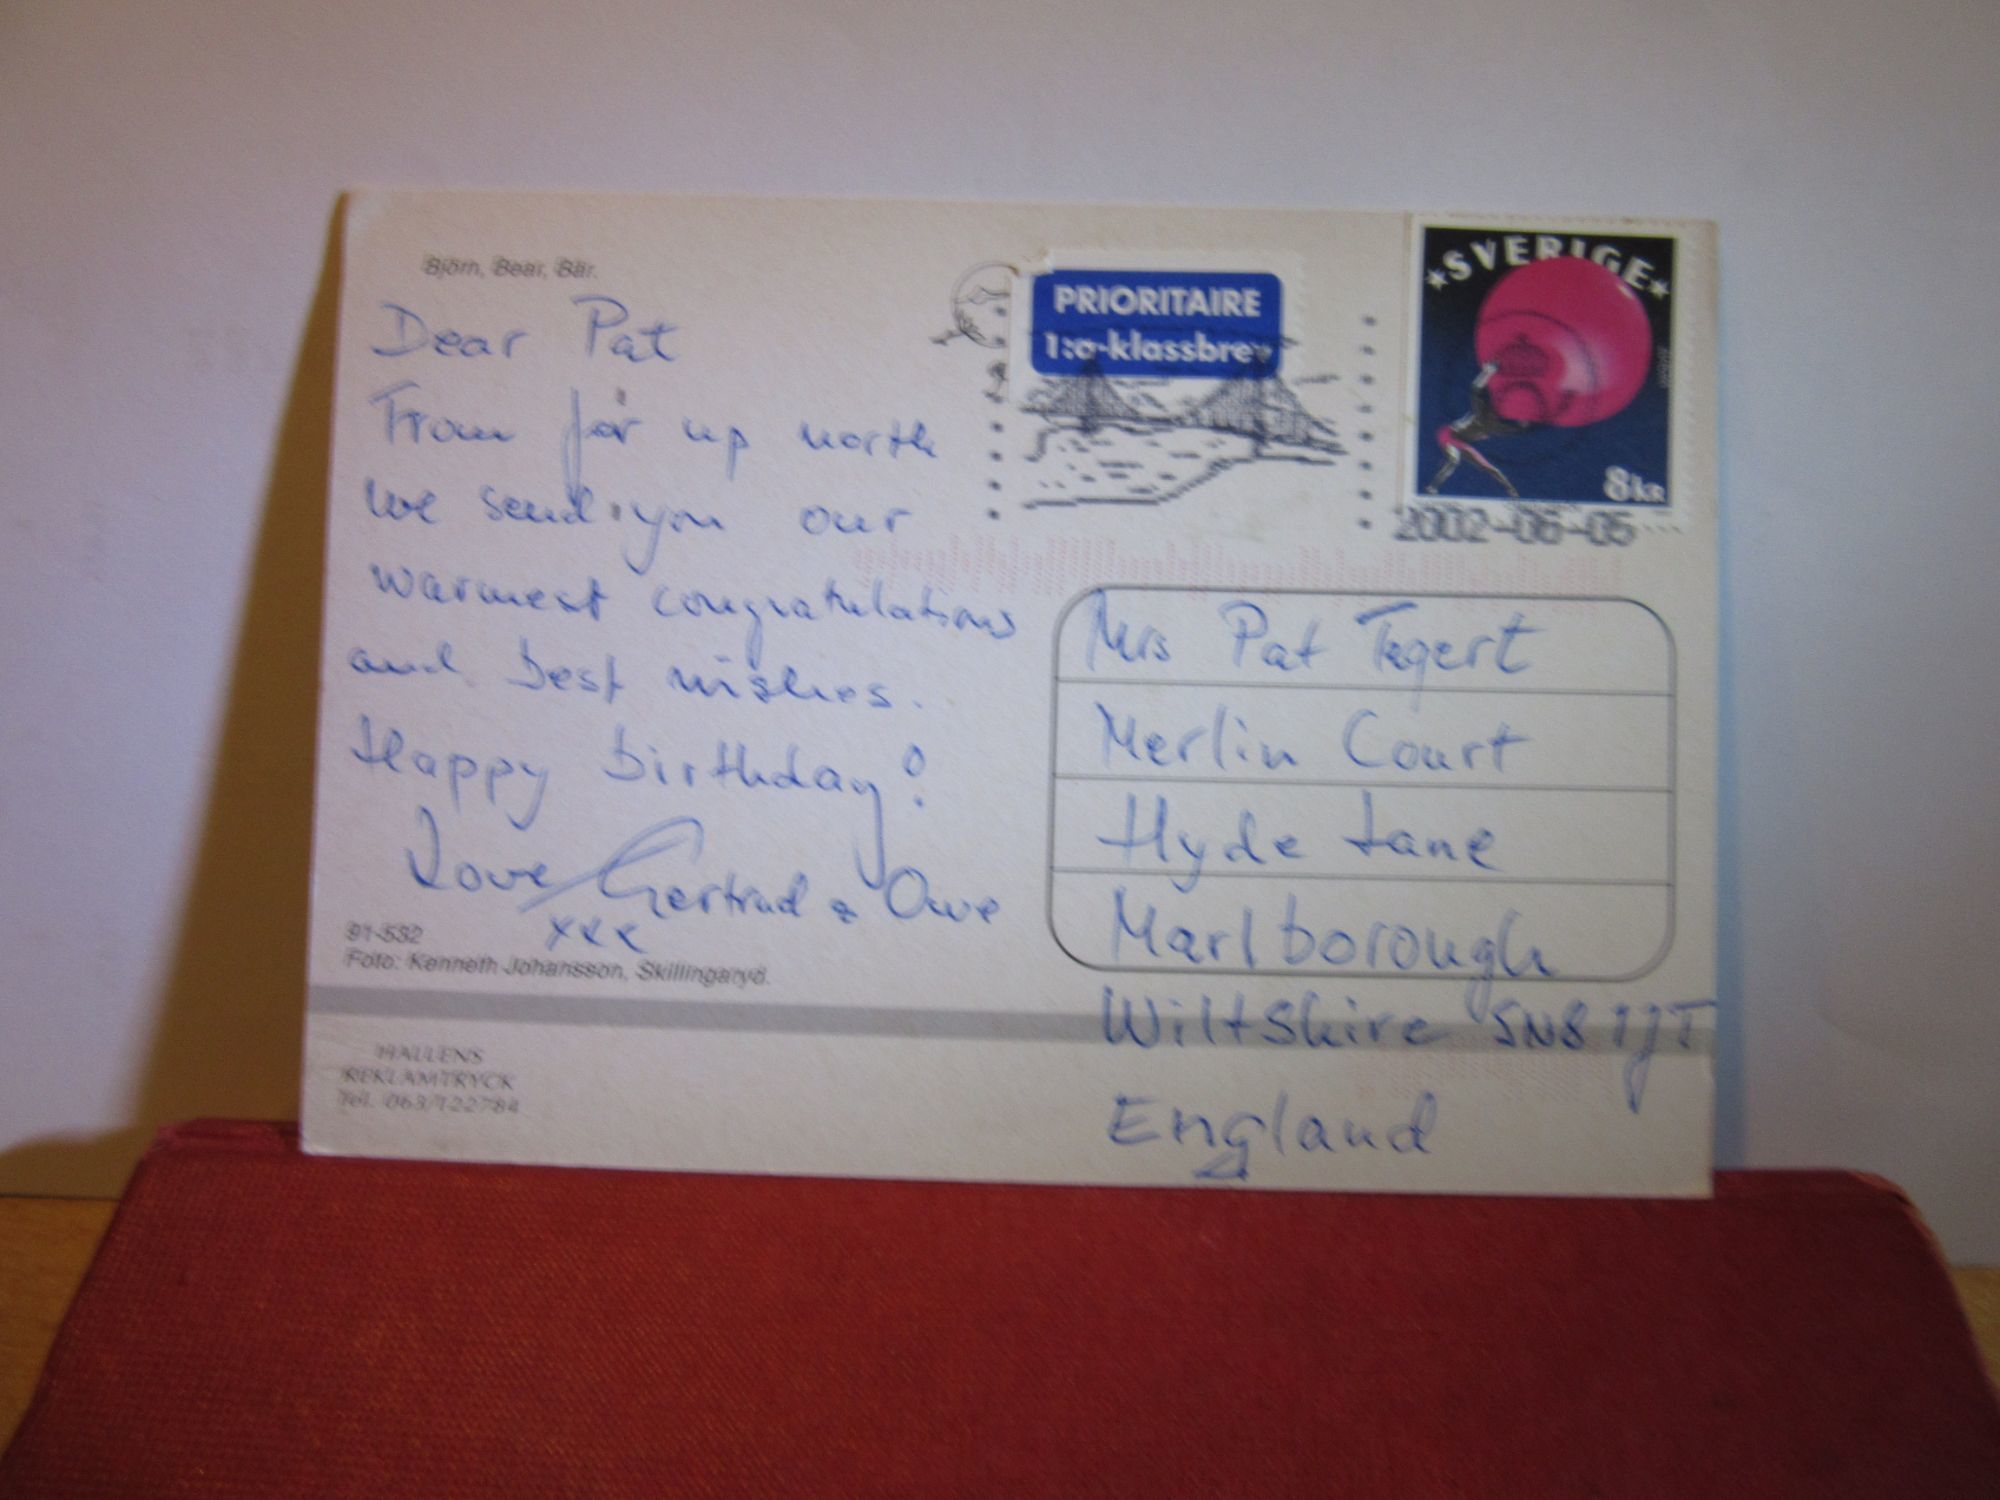 Björn, Bear, Bär.
Dear Pat
From far up north
we send you our
warmest congratulations
and best wishes.
Happy birthday!
Love Gertrud & Owe
xxx
91-532
Foto: Kenneth Johansson, Skillingaryd.
HALLENS
REKLAMTRYCK
Tel. 063/122784
PRIORITAIRE
1:a-klassbrev
SVERIGE
8KR
2002-06-05
Mrs Pat Tegert
Merlin Court
Hyde Lane
Marlborough
Wiltshire SN8 1JT
England